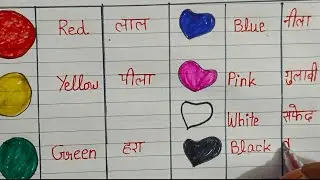 Red लाल Blue नीला
Yellow पीला Pink गुलाबी
White सफेद
Green हरा Black